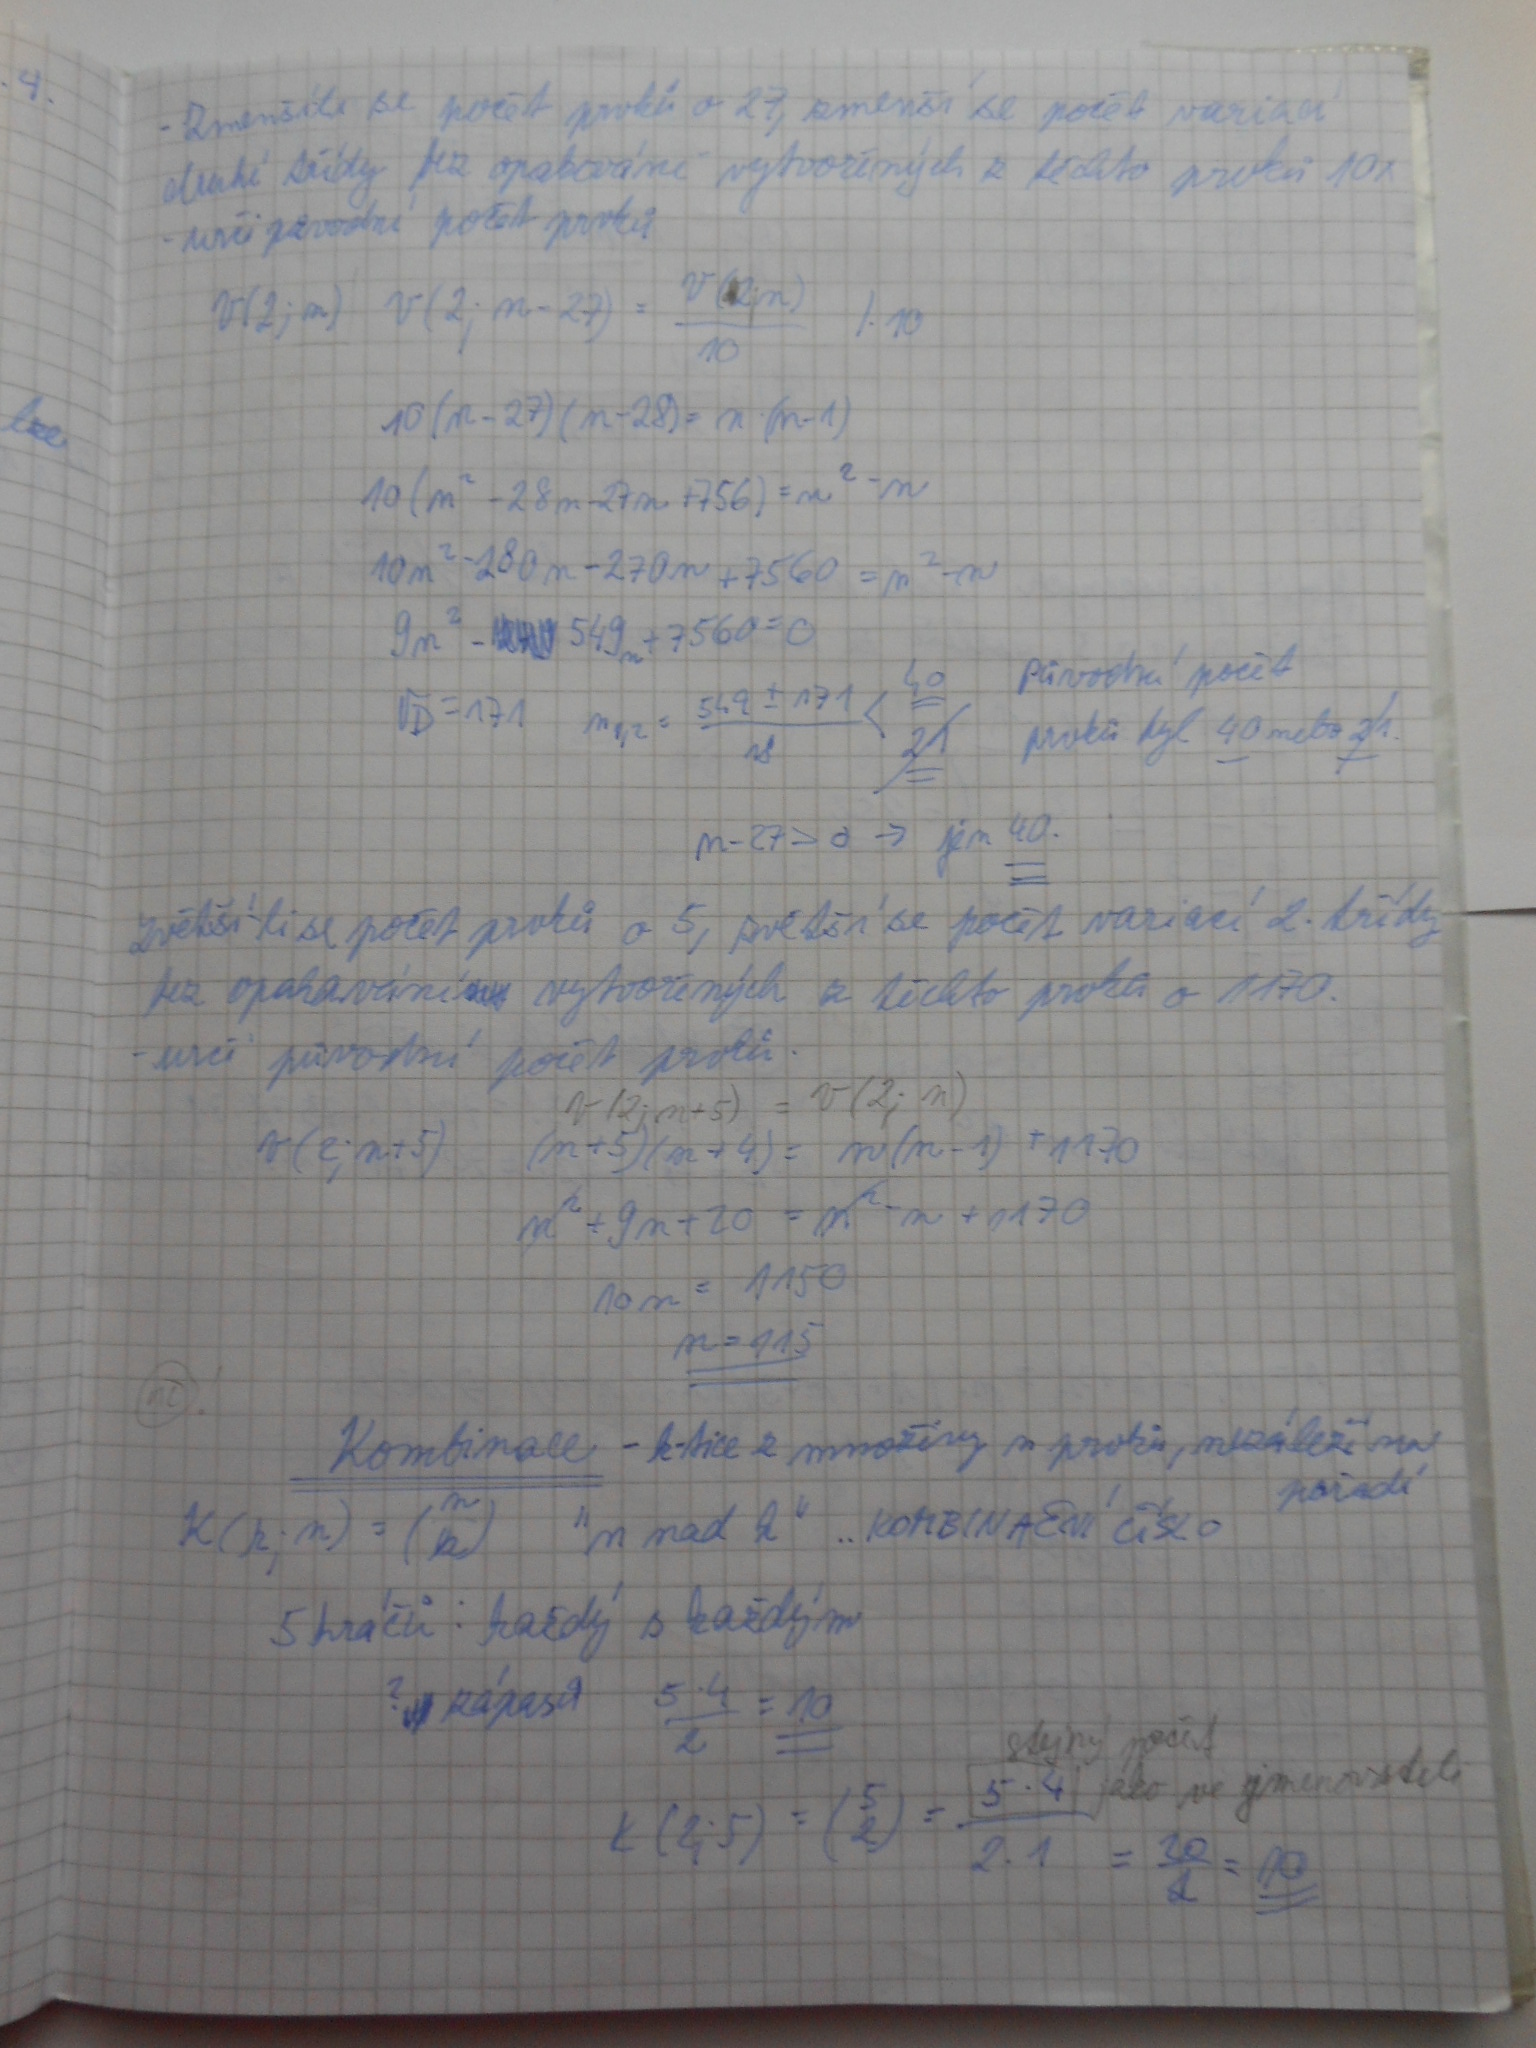 .4.
- Zmenší-li se počet prvků o 27, zmenší se počet variací
druhé třídy bez opakování vytvořených z těchto prvků 10x
- urči původní počet prvků
V(2; n) V(2; n-27) = V(2; n) / 10 /·10
10(n-27)(n-28) = n·(n-1)
10(n² - 28n - 27n + 756) = n² - n
10n² - 280n - 270n + 7560 = n² - n
9n² - 549n + 7560 = 0
√D = 171 n₁,₂ = 549 ± 171 / 18 < 40 21 Původní počet
prvků byl 40 nebo 21.
n - 27 > 0 → jen 40.
zvětší-li se počet prvků o 5, zvětší se počet variací 2. třídy
bez opakování vytvořených z těchto prvků o 1170.
- urči původní počet prvků.
V(2; n+5) = V(2; n)
V(2; n+5) (n+5)(n+4) = n(n-1) + 1170
n² + 9n + 20 = n² - n + 1170
10n = 1150
n = 115
Kombinace - k-tice z množiny n prvků, nezáleží na
pořadí
K(k; n) = (n k) "n nad k" .. KOMBINAČNÍ ČÍSLO
5 hráčů : každý s každým
? zápasů 5·4 / 2 = 10
stejný počet
jako ve jmenovateli
K(2; 5) = (5 2) = 5·4 / 2·1 = 20 / 2 = 10